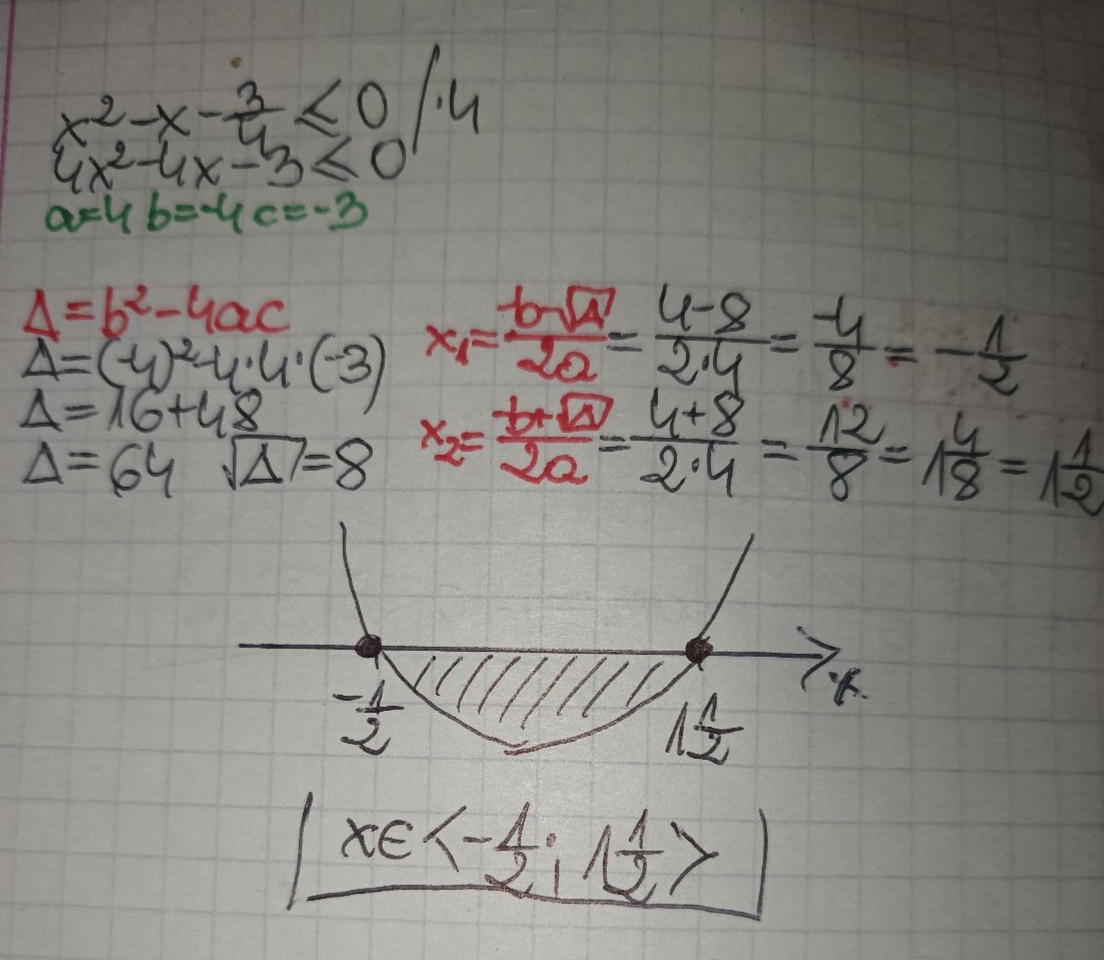 x² - x - 3/4 ≤ 0 / ·4
4x² - 4x - 3 ≤ 0
a=4 b=-4 c=-3
Δ = b² - 4ac
Δ = (-4)² - 4·4·(-3)
Δ = 16 + 48
Δ = 64 √Δ = 8
x₁ = (-b-√Δ)/2a = (4-8)/(2·4) = -4/8 = -1/2
x₂ = (-b+√Δ)/2a = (4+8)/(2·4) = 12/8 = 1 4/8 = 1 1/2
x
-1/2 1 1/2
x∈<-1/2; 1 1/2>